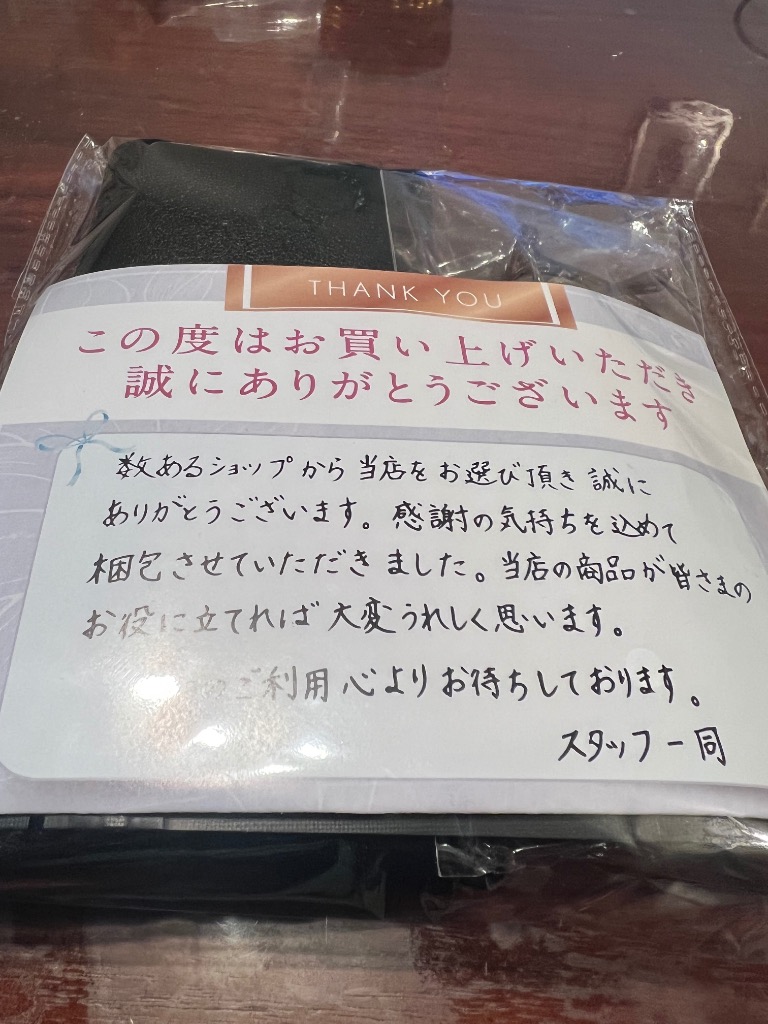 THANK YOU
この度はお買い上げいただき
誠にありがとうございます
数あるショップから当店をお選び頂き誠に
ありがとうございます。感謝の気持ちを込めて
梱包させていただきました。当店の商品が皆さまの
お役に立てれば大変うれしく思います。
ご利用心よりお待ちしております。
スタッフ一同